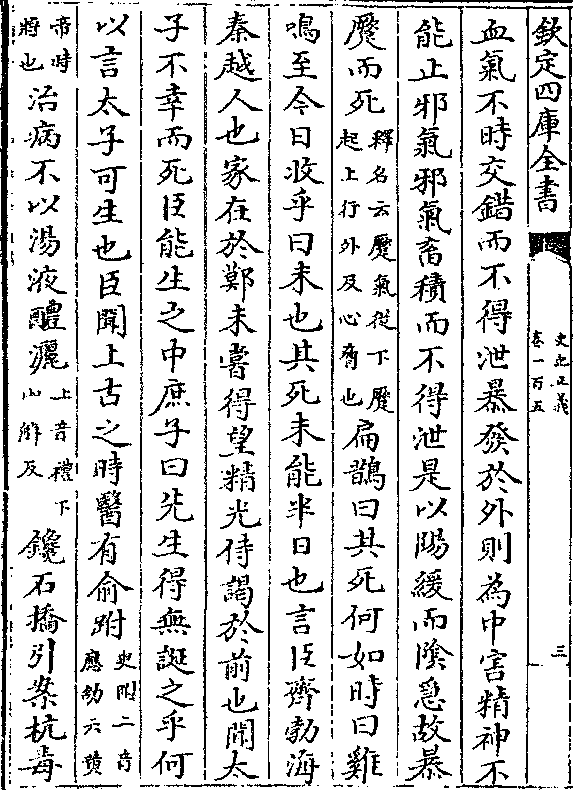 欽定四庫全書
史記正義
卷一百五
三
血氣不時交錯而不得泄暴發於外則為中害精神不
能止邪氣邪氣畜積而不得泄是以陽緩而陰急故暴
蹷而死釋名云蹷氣從下蹷
起上行外及心脅也扁鵲曰其死何如時曰雞
鳴至今日收乎曰未也其死未能半日也言臣齊勃海
秦越人也家在於鄭未嘗得望精光侍謁於前也聞太
子不幸而死臣能生之中庶子曰先生得無誕之乎何
以言太子可生也臣聞上古之時醫有俞跗臾附二音
應劭云黄
帝時
將也治病不以湯液醴灑上音禮下
山解反鑱石撟引案杭毒